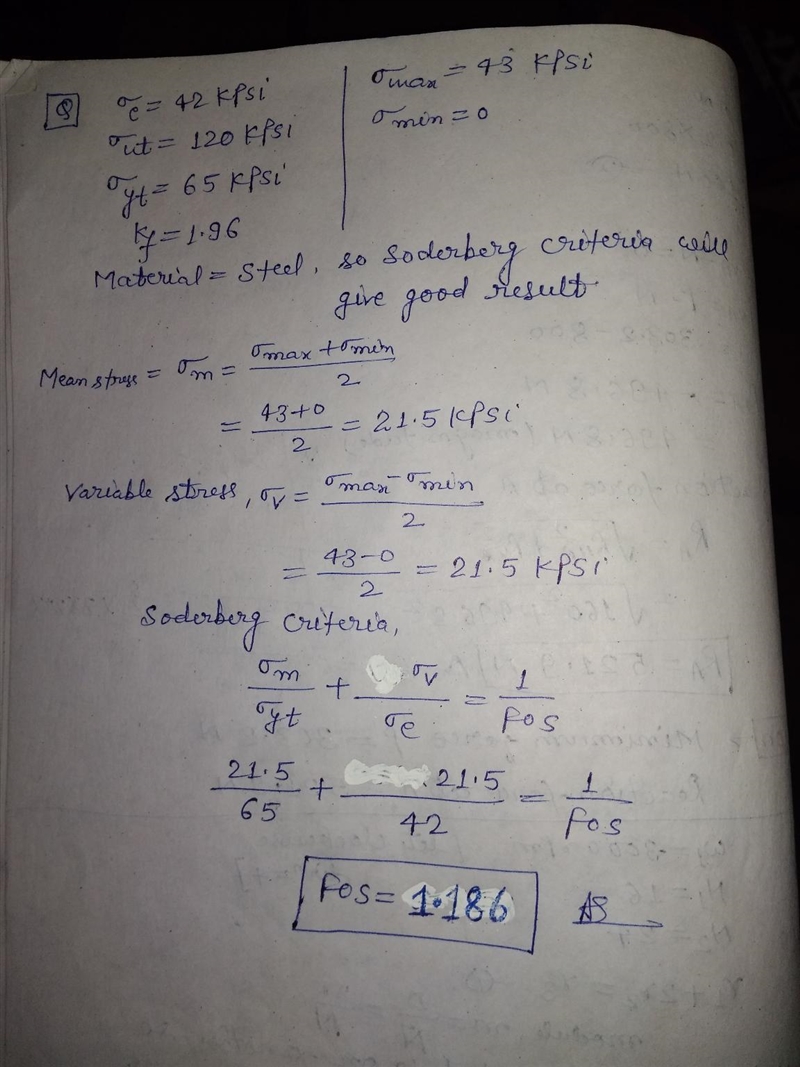 Q σe = 42 KPSi
σut = 120 KPSi
σyt = 65 KPSi
Kf = 1.96
σmax = 43 KPSi
σmin = 0
Material = Steel, so Soderberg criteria will
give good result
Mean stress = σm = (σmax + σmin)/2
= (43+0)/2 = 21.5 KPSi
Variable stress, σv = (σmax - σmin)/2
= (43-0)/2 = 21.5 KPSi
Soderberg criteria,
σm/σyt + σv/σe = 1/FOS
21.5/65 + 21.5/42 = 1/FOS
FOS = 1.186